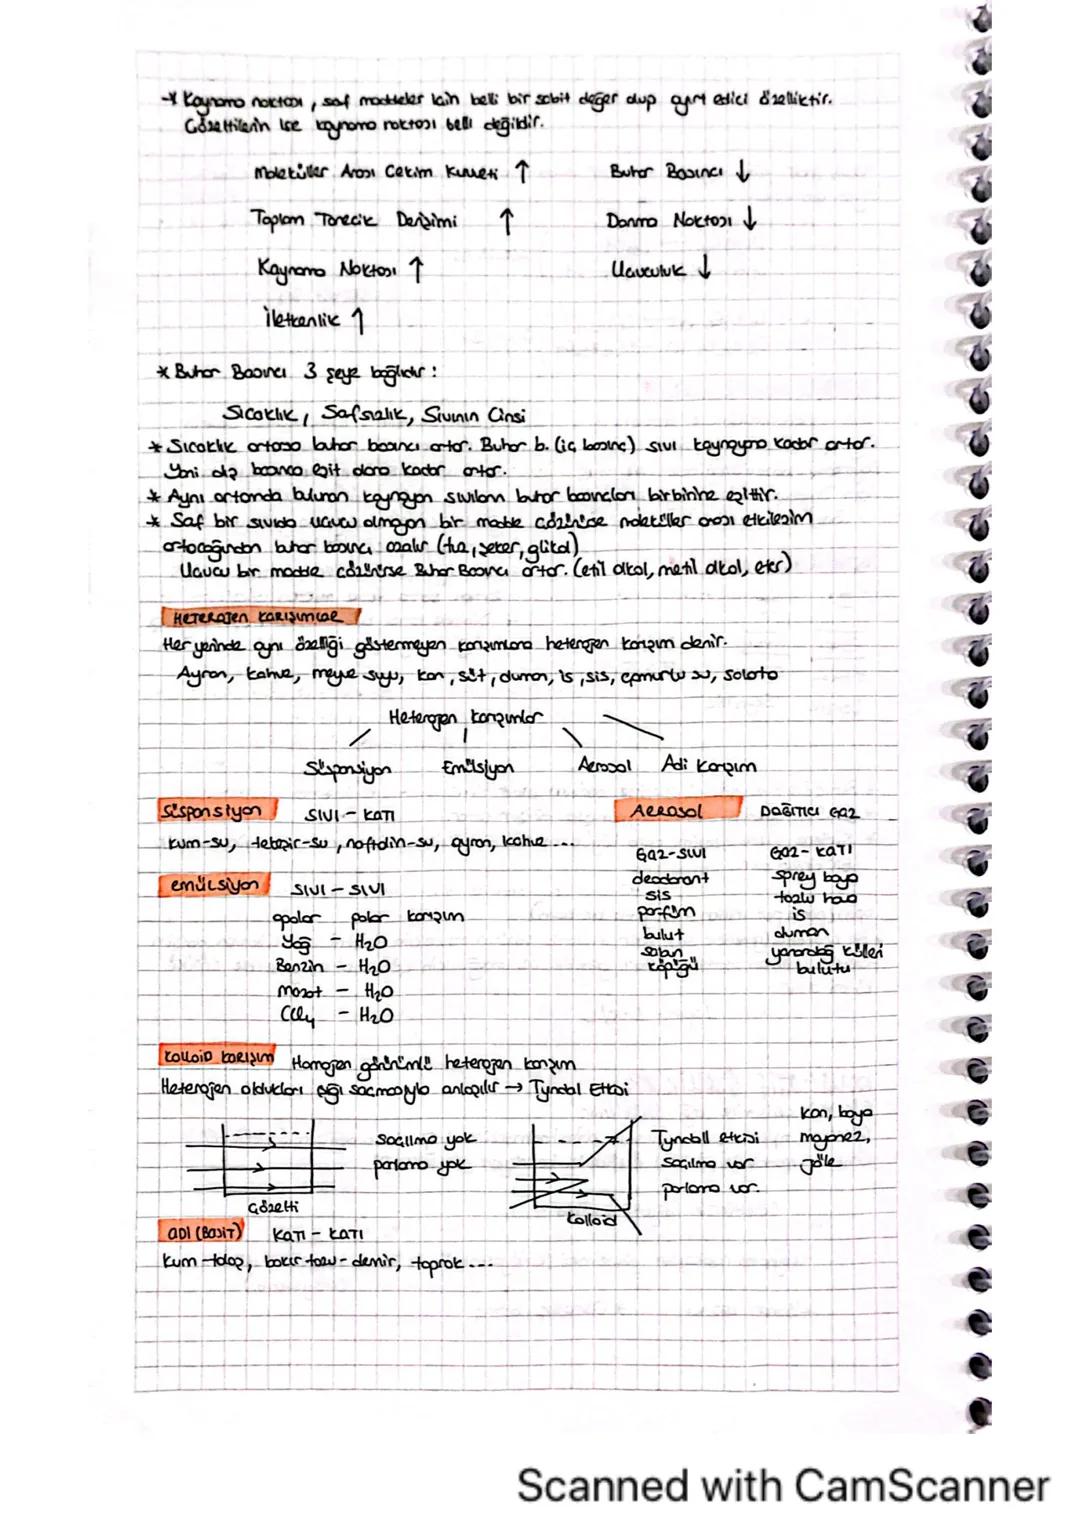 →* Kaynama noktası, saf maddeler için belli bir sabit değer olup ayırt edici özelliktir.
Çözeltilerin ise kaynama noktası belli değildir.
Moleküller Arası Çekim Kuvveti ↑ Buhar Basıncı ↓
Toplam Tanecik Derişimi ↑ Donma Noktası ↓
Kaynama Noktası ↑ Uçuculuk ↓
İletkenlik ↑
* Buhar Basıncı 3 şeye bağlıdır:
Sıcaklık, Safsızlık, Sıvının Cinsi
* Sıcaklık artarsa buhar basıncı artar. Buhar b. (iç basınç) sıvı kaynayana kadar artar.
Yani dış basınca eşit olana kadar artar.
* Aynı ortamda bulunan kaynayan sıvıların buhar basınçları birbirine eşittir.
* Saf bir sıvıda uçucu olmayan bir madde çözünürse moleküller arası etkileşim
artacağından buhar basıncı azalır (tuz, şeker, glikol)
Uçucu bir madde çözünürse Buhar Basıncı artar. (etil alkol, metil alkol, eter)
HETEROJEN KARIŞIMLAR
Her yerinde aynı özelliği göstermeyen karışımlara heterojen karışım denir.
Ayran, kahve, meyve suyu, kan, süt, duman, is, sis, çamurlu su, salata
Heterojen karışımlar
Süspansiyon Emülsiyon Aerosol Adi Karışım
Süspansiyon SIVI - KATI
kum-su, tebeşir-su, naftalin-su, ayran, kahve ...
emülsiyon SIVI - SIVI
apolar polar karışım
Yağ - H₂O
Benzin - H₂O
Mazot - H₂O
CCl₄ - H₂O
AEROSOL DAĞITICI GAZ
GAZ-SIVI GAZ-KATI
deodorant sprey boya
sis tozlu hava
parfüm is
bulut duman
sabun köpüğü yanardağ külleri bulutu
KOLLOİD KARIŞIM Homojen görünümlü heterojen karışım
Heterojen oldukları ışığı saçmasıyla anlaşılır → Tyndal Etkisi
saçılma yok
parlama yok
Çözelti
Tyndall etkisi
saçılma var
parlama var.
Kolloid
kan, boya
mayonez,
jöle
ADİ (BASİT) KATI - KATI
kum-talaş, bakır tozu-demir, toprak ...
Scanned with CamScanner